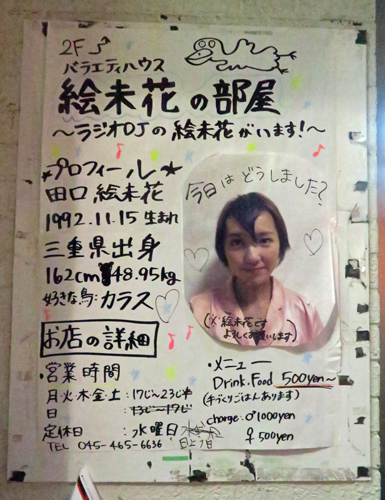 2F
バラエティハウス
絵未花の部屋
～ラジオDJの絵未花がいます!～
★プロフィール★
田口 絵未花
1992.11.15 生まれ
三重県出身
162cm 48.95kg
好きな鳥:カラス
今日はどうしました?
(※絵未花です
よろしくお願いします)
お店の詳細
・営業時間
月火木金土:17じ～23じ半
日 :13じ～17じ
定休日 :水曜日
TEL 045-465-6636 日よう日
・メニュー
Drink.Food 500yen～
(手づくりごはんあります)
charge:♂1000yen
♀500yen